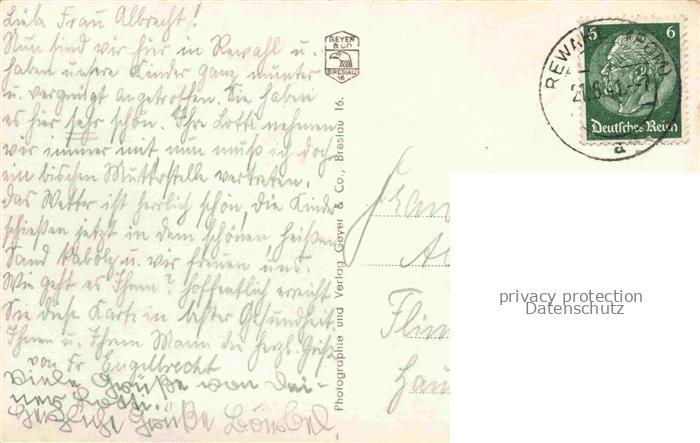 Liebe Frau Albrecht!
Nun sind wir hier in Rewahl u.
haben unsre Kinder ganz munter
u. vergnügt angetroffen. Sie haben
es hier sehr schön. Ihre Lotti nehmen
wir immer mit nun muß ich doch
ein bischen Mutterstelle vertreten.
Das Wetter ist herlich schön, die Kinder
schießen jetzt in dem schönen, heißen
Sand Kabolz u. wir freuen uns.
Wie geht es Ihnen? hoffentlich erreicht
Sie diese Karte in bester Gesundheit.
Ihnen u. Ihrem Mann die herzl. Grüße
von Fr. Engelbrecht
Viele Grüße von Dei-
ner Lotti.
Herzliche Grüße Bärbel.
GEYER
& CO
BRESLAU
16
Photographie und Verlag Geyer & Co., Breslau 16.
5 6
Deutsches Reich
REWAHL (POM)
a
privacy protection
Datenschutz